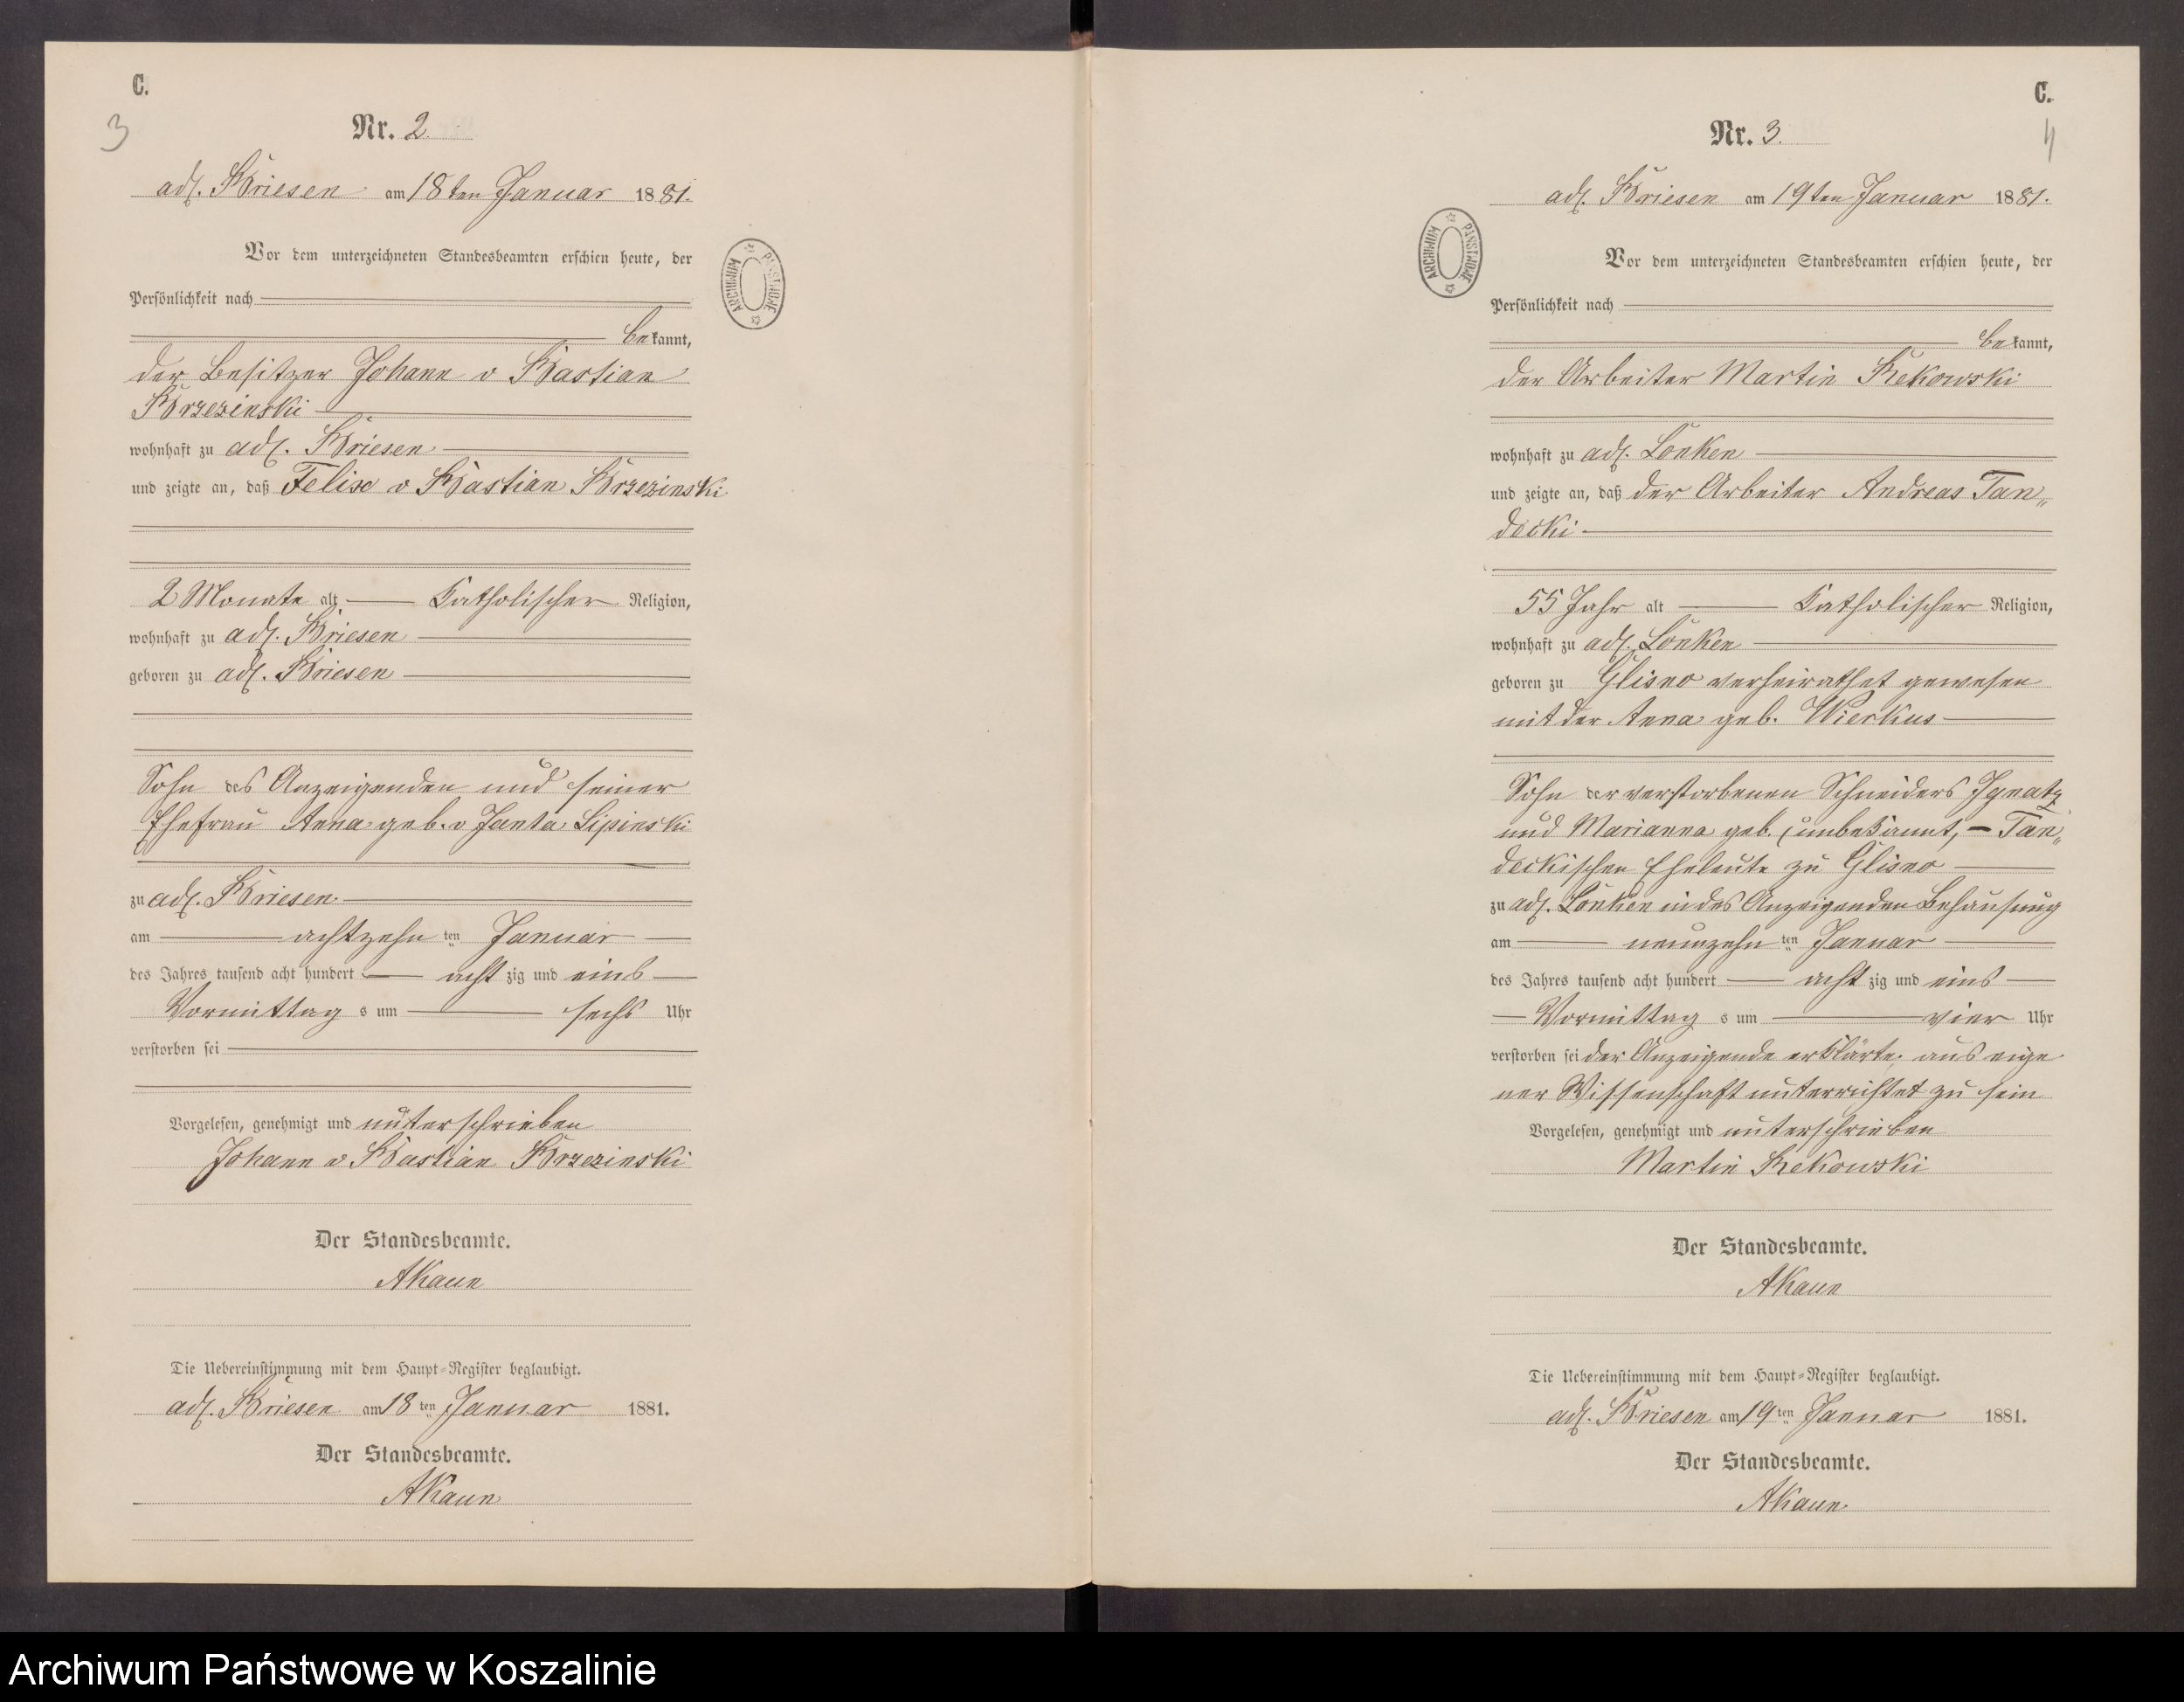 C.
3
Nr. 2.
adl. Briesen am 18ten Januar 1881.
Vor dem unterzeichneten Standesbeamten erschien heute, der
Persönlichkeit nach
bekannt,
der Besitzer Johann v Bastian
Brzezinski
wohnhaft zu adl. Briesen
und zeigte an, daß Felix v Bastian Brzezinski
2 Monate alt Katholischer Religion,
wohnhaft zu adl. Briesen
geboren zu adl. Briesen
Sohn des Anzeigenden und seiner
Ehefrau Anna geb. v Janta Lipinski
zu adl. Briesen
am achtzehnten Januar
des Jahres tausend acht hundert achtzig und eins
Vormittags um sechs Uhr
verstorben sei
Vorgelesen, genehmigt und unterschrieben
Johann v Bastian Brzezinski
Der Standesbeamte.
AKaun
Die Uebereinstimmung mit dem Haupt-Register beglaubigt.
adl. Briesen am 18ten Januar 1881.
Der Standesbeamte.
AKaun
ARCHIWUM PAŃSTWOWE
C.
4
Nr. 3.
adl. Briesen am 19ten Januar 1881.
ARCHIWUM PAŃSTWOWE
Vor dem unterzeichneten Standesbeamten erschien heute, der
Persönlichkeit nach
bekannt,
der Arbeiter Martin Rekowski
wohnhaft zu adl. Lonken
und zeigte an, daß der Arbeiter Andreas Tan„
decki
55 Jahr alt Katholischer Religion,
wohnhaft zu adl. Lonken
geboren zu Glisno verheirathet gewesen
mit der Anna geb. Wierkus
Sohn der verstorbenen Schneiders Ignatz
und Marianna geb. (unbekannt, - Tan„
deckischen Eheleute zu Glisno
zu adl. Lonken in des Anzeigenden Behausung
am neunzehnten Januar
des Jahres tausend acht hundert achtzig und eins
Vormittags um vier Uhr
verstorben sei der Anzeigende erklärte, aus eige
ner Wissenschaft unterrichtet zu sein
Vorgelesen, genehmigt und unterschrieben
Martin Rekowski
Der Standesbeamte.
AKaun
Die Uebereinstimmung mit dem Haupt-Register beglaubigt.
adl. Briesen am 19ten Januar 1881.
Der Standesbeamte.
AKaun.
Archiwum Państwowe w Koszalinie